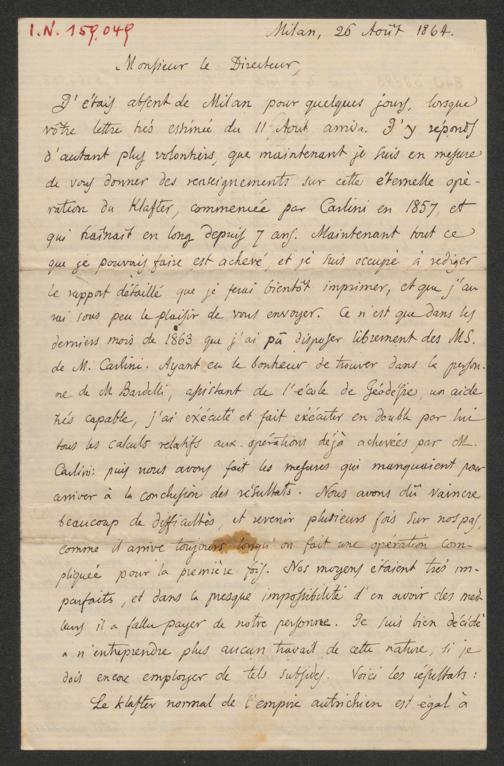 I.N. 159.049
Milan, 26 Août 1864.
Monsieur le Directeur,
J'étais absent de Milan pour quelques jours, lorsque
vôtre lettre très estimée du 11 Aout arriva. J'y réponds
d'autant plus volontiers, que maintenant je suis en mesure
de vous donner des renseignements sur cette éternelle opé-
ration du Klafter, commencée par Carlini en 1857, et
qui traînait en long depuis 7 ans. Maintenant tout ce
que je pouvais faire est achevé, et je suis occupé à rediger
le rapport détaillé que je ferai bientôt imprimer, et que j'au-
rai sous peu le plaisir de vous envoyer. Ce n'est que dans les
derniers mois de 1863 que j'ai pû disposer librement des MS.
de M. Carlini. Ayant eu le bonheur de trouver dans la person-
ne de M Bardelli, assistant de l'école de Géodésie, un aide
très capable, j'ai exécuté et fait exécuter en double par lui
tous les calculs relatifs aux opérations déjà achevées par M.
Carlini: puis nous avons fait les mesures qui manquaient pour
arriver à la conclusion des résultats. Nous avons dû vaincre
beaucoup de difficultés, et revenir plusieurs fois sur nos pas,
comme il arrive toujours lorsqu'on fait une opération com-
pliquée pour la première fois. Nos moyens étaient très im-
parfaits, et dans la presque impossibilité d'en avoir des meil-
leurs il a fallu payer de notre personne. Je suis bien décidé
à n'entreprendre plus aucun travail de cette nature, si je
dois encore employer de tels subsides. Voici les résultats:
Le Klafter normal de l'empire autrichien est égal à